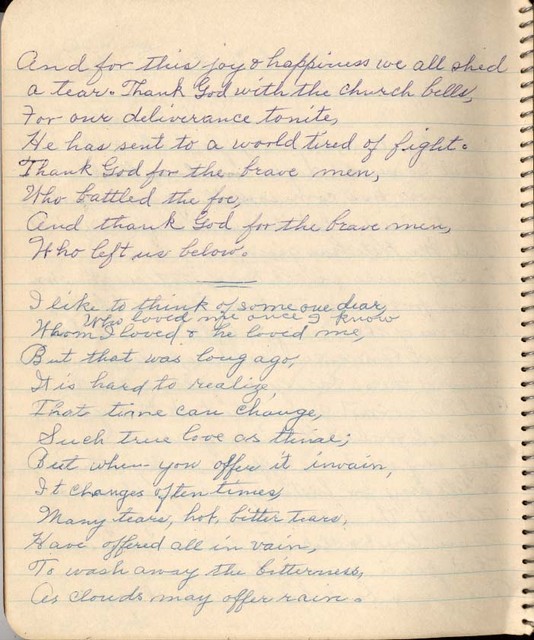 And for this joy & happiness we all shed
a tear. Thank God with the church bells,
For our deliverance tonite,
He has sent to a world tired of fight.
Thank God for the brave men,
Who battled the foe,
And thank God for the brave men,
Who left us below.
I like to think of someone dear,
Who loved me once I know
Whom I loved & he loved me,
But that was long ago,
It is hard to realize
That time can change,
Such true love as thine;
But when you offer it invain,
It changes often times,
Many tears, hot, bitter tears,
Have offered all in vain,
To wash away the bitterness,
As clouds may offer rain.